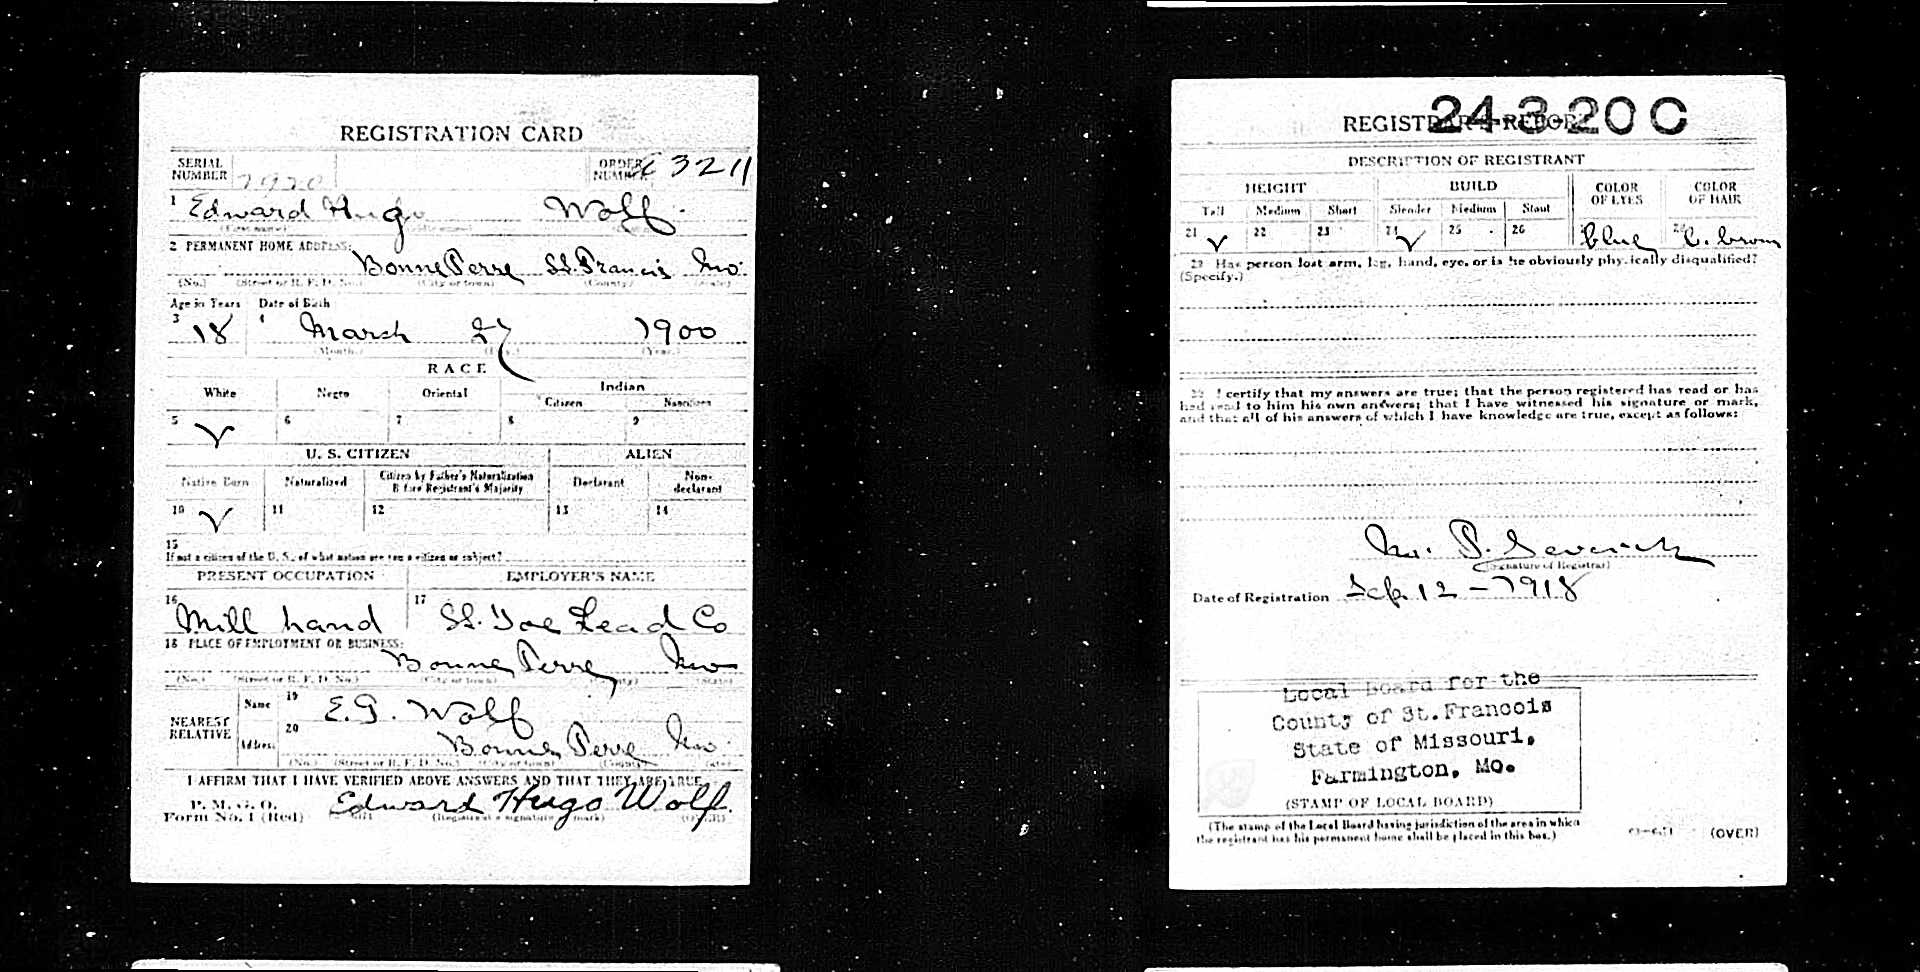 REGISTRATION CARD
SERIAL NUMBER ORDER NUMBER 3211
1 Edward Hugo Wolf.
(First name) (Middle name)
2 PERMANENT HOME ADDRESS:
Bonne Terre St. Francis Mo.
(No.) (Street or R. F. D. No.) (City or town) (County) (State)
Age in Years Date of Birth
3 18 4 March 27 1900
(Month.) (Day.) (Year.)
RACE
White Negro Oriental Indian
Citizen Noncitizen
5 V 6 7 8 9
U. S. CITIZEN ALIEN
Native Born Naturalized Citizen by Father's Naturalization Before Registrant's Majority Declarant Non-declarant
10 V 11 12 13 14
15
If not a citizen of the U. S., of what nation are you a citizen or subject?
PRESENT OCCUPATION EMPLOYER'S NAME
16 Mill hand 17 St. Joe Lead Co
18 PLACE OF EMPLOYMENT OR BUSINESS:
Bonne Terre Mo
(No.) (Street or R. F. D. No.) (City or town) (County) (State)
NEAREST RELATIVE Name 19 E.G. Wolf
Address 20 Bonne Terre Mo.
(No.) (Street or R. F. D. No.) (City or town) (County) (State)
I AFFIRM THAT I HAVE VERIFIED ABOVE ANSWERS AND THAT THEY ARE TRUE
P. M. G. O.
Form No. 1 (Red) Edward Hugo Wolf.
(Registrant's signature or mark) (OVER)
24-3-20 C
REGISTRAR'S REPORT
DESCRIPTION OF REGISTRANT
HEIGHT BUILD COLOR OF EYES COLOR OF HAIR
Tall Medium Short Slender Medium Stout
21 V 22 23 24 V 25 26 blue brown
29 Has person lost arm, leg, hand, eye, or is he obviously physically disqualified?
(Specify.)
30 I certify that my answers are true; that the person registered has read or has
had read to him his own answers; that I have witnessed his signature or mark,
and that all of his answers of which I have knowledge are true, except as follows:
(Signature of Registrar)
Date of Registration Sep. 12 - 1918
Local Board for the
County of St. Francois
State of Missouri,
Farmington, Mo.
(STAMP OF LOCAL BOARD)
(The stamp of the Local Board having jurisdiction of the area in which
the registrant has his permanent home shall be placed in this box.)
(OVER)